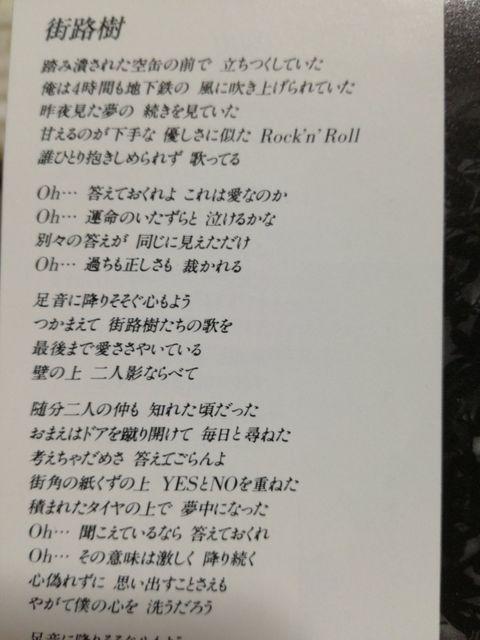 街路樹
踏み潰された空缶の前で 立ちつくしていた
俺は4時間も地下鉄の 風に吹き上げられていた
昨夜見た夢の 続きを見ていた
甘えるのが下手な 優しさに似た Rock'n'Roll
誰ひとり抱きしめられず 歌ってる
Oh… 答えておくれよ これは愛なのか
Oh… 運命のいたずらと 泣けるかな
別々の答えが 同じに見えただけ
Oh… 過ちも正しさも 裁かれる
足音に降りそそぐ心もよう
つかまえて 街路樹たちの歌を
最後まで愛ささやいている
壁の上 二人影ならべて
随分二人の仲も 知れた頃だった
おまえはドアを蹴り開けて 毎日と尋ねた
考えちゃだめさ 答えてごらんよ
街角の紙くずの上 YESとNOを重ねた
積まれたタイヤの上で 夢中になった
Oh… 聞こえているなら 答えておくれ
Oh… その意味は激しく 降り続く
心偽れずに 思い出すことさえも
やがて僕の心を 洗うだろう